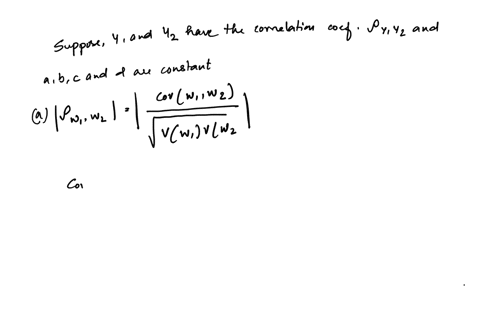 Suppose, Y₁ and Y₂ have the correlation coef. ρ_{Y₁,Y₂} and
a, b, c and d are constant
(a) |ρ_{W₁,W₂}| = | cov(W₁,W₂) / √(V(W₁)V(W₂ |
Co